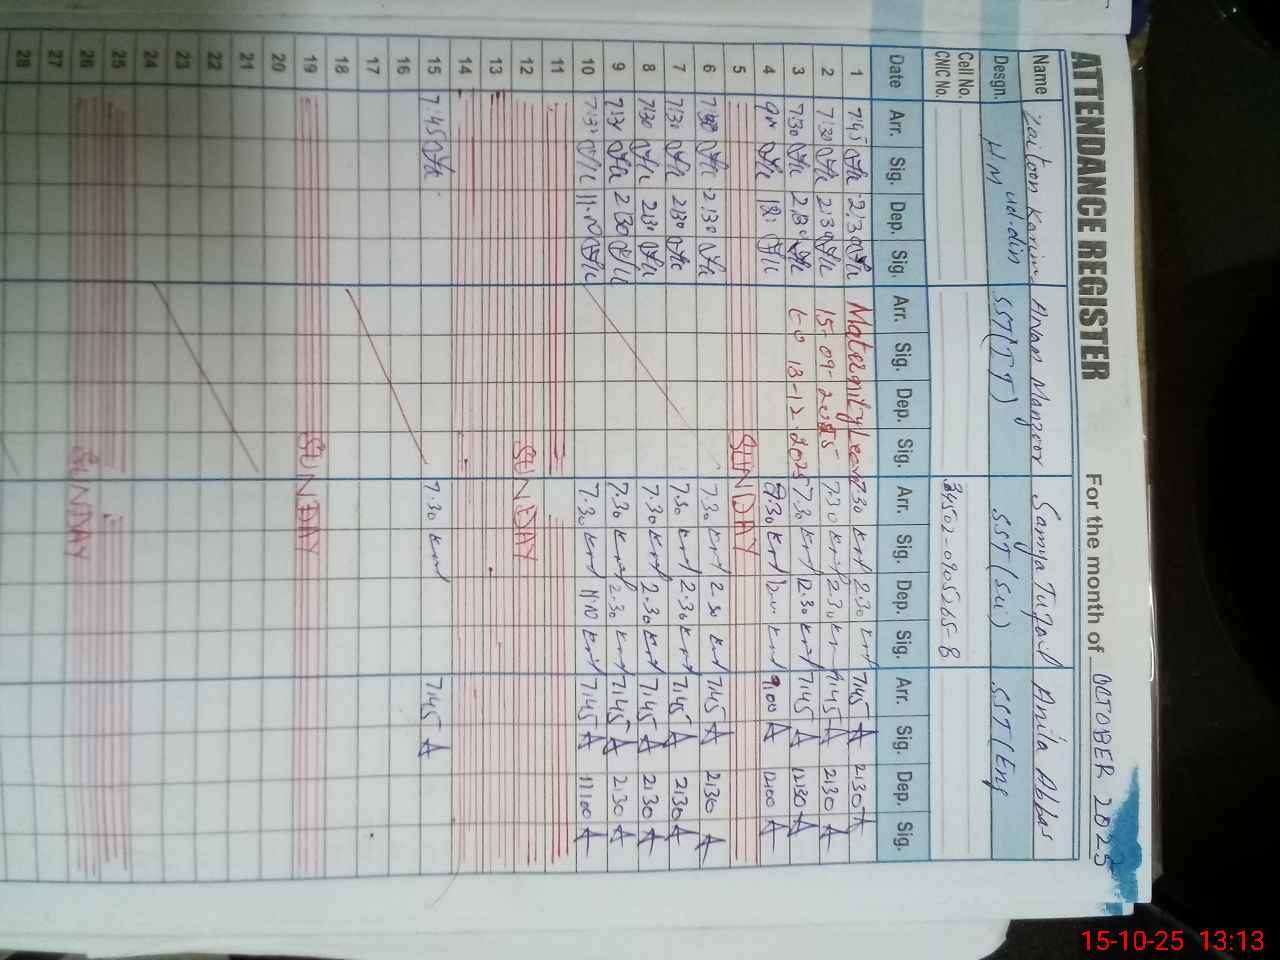 ATTENDANCE REGISTER For the month of OCTOBER 2025
Name Zaitoon Karim Anam Manzoor Samya Tufail Anila Abbas
ud-din
Desgn. HM SST(IT) SST(Sci) SST(Eng
Cell No.
CNIC No. 34502-0905265-8
Date Arr. Sig. Dep. Sig. Arr. Sig. Dep. Sig. Arr. Sig. Dep. Sig. Arr. Sig. Dep. Sig.
1 7:45 2:30 Maternity Leave 7.30 2.30 7:45 A 2:30 A
2 7:30 2:30 15-09-2025 7.30 2.30 7:45 A 2:30 A
3 7:30 2:30 to 13-12-2025 7.30 12.30 7:45 A 12:30 A
4 12.00 9:00 A 12:00 A
5 SUNDAY
6 7:30 2:30 7.30 2.30 7:45 A 2:30 A
7 7:30 2:30 7.30 2.30 7:45 A 2:30 A
8 7:30 2:30 7.30 2.30 7:45 A 2:30 A
9 7:30 2:30 7.30 2.30 7:45 A 2:30 A
10 7:30 11:00 7.30 11.10 7:45 A 11:00 A
11
12 SUNDAY
13
14
15 7:45 7.30 7:45 A
16
17
18
19 SUNDAY
20
21
22
23
24
25
26 SUNDAY
27
28
15-10-25 13:13